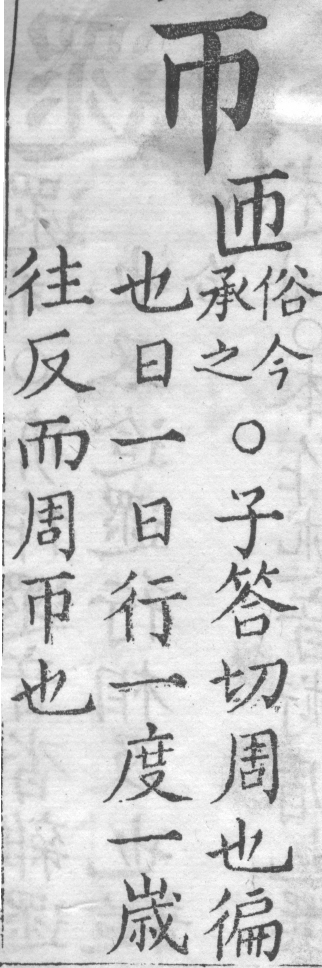 帀
匝俗今承之〇子答切周也徧
也日一日行一度一歲
往反而周帀也